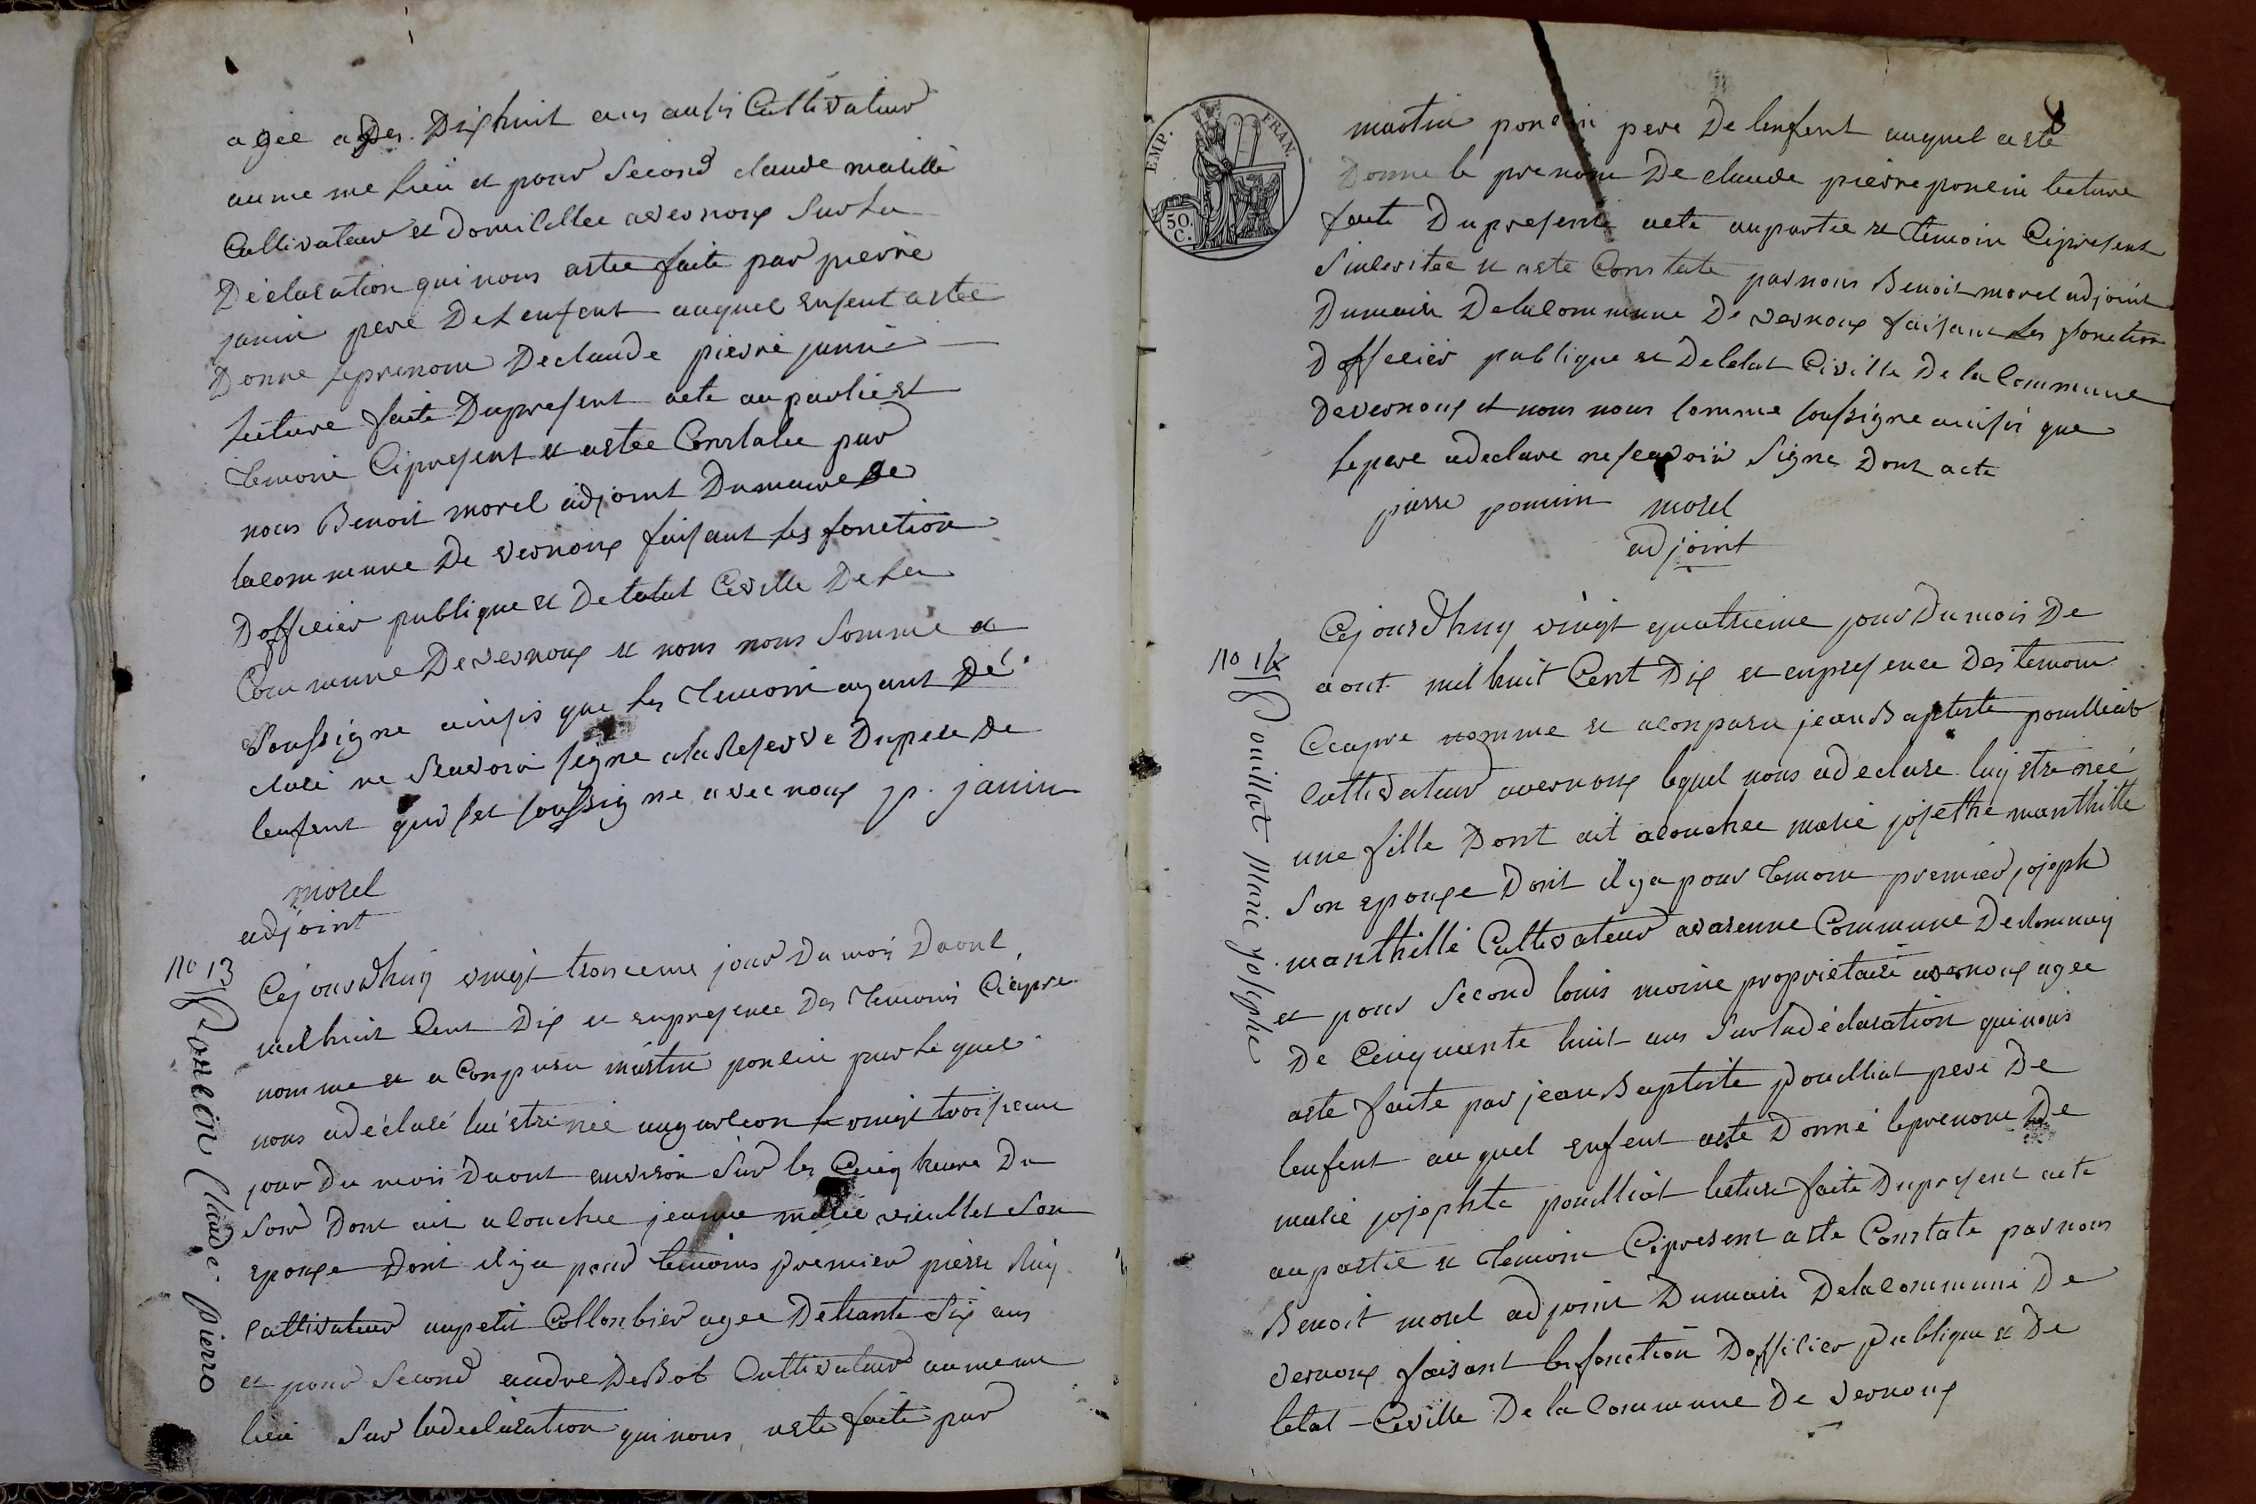 agée de Dixhuit ans aussi Cultivateur
aume me Lieu et pour Second claude
Cultivateur et domicillee avernoux Sur La
Déclaration qui nous astee faite par pierre
janin pere De Lenfent auquel Enfent astee
Donne Le prenom Declaude pierre janin
Lecture faite Dupresent acte au partie et
Temoin Cipresent et astee Constatee par
nous Benoit morel adjoint Dumaire De
lacommune De vernoux faisant Les fonction
Dofficier publique et Deletat Civille De La
Commune Devernoux et nous nous Somme
Soussigne ainsis que Les Temoin ayant Dé
claré ne Scavoir signe alaReserve Dupere De
lenfent qui set soussigne avec nous p. janin
morel
adjoint
no 13
Poncin Claude pierre
Cejourdhuy vingt troiceme jour Du mois Daout
mil huit Cent Dix et enpresence Des Temoins Ciapre
nomme et a Conparu martin poncin par Le quel
nous adéclaré luiêtre néé ungarcon le vingt troisieme
jour Du mois Daout environ Sur les Cinq heure Du
Soir Dont ait acouchee jeanne marie vieullet Son
Epouxe Dont ilya pour temoins premier pierre
Cultivateur aupetit Collonbier agee Detrante Six ans
et pour Second andre DesBot Cultivateur aumeme
lieu Sur ladeclaration quinous aste faite par
8
EMP. FRAN.
50 C.
martin poncin pere De lenfent auquel aste
Donne le prenom De claude pierre poncin lecture
faite Dupresent acte aupartie et Temoin Cipresent
et aste Constate parnous Benoit morel adjoint
Dumaire Delacommune De vernoux faisant Les fonction
Dofficier publique et Deletat Civille De la Commune
Devernoux et nous nous Somme soussigne ainsi que
Le pere adeclare nescavoir Signe Dont acte
pierre poncin morel
adjoint
no 14
Pouillat Marie josephe
Cejourdhuy vingt quatrieme jour Dumois De
aout mil huit Cent Dix et enpresence Des temoin
Ciapre nomme et aconparu jean Baptiste pouilliat
Cultivateur avernoux lequel nous adeclare luy etre néé
une fille Dont ait acouchee marie josethe manthille
Son epouxe Dont il ya pour Temoin premier joseph
manthille Cultivateur avarenne Commune De
et pour Second louis moine proprietaire avernoux agee
De Cinquante huit ans Sur ladéclaration quinous
aste faite par jean Baptiste Pouilliat pere De
lenfent auquel Enfent aste Donné leprenom De
marie josephte pouilliat lecture faite Dupresent acte
aupartie et Temoin Cipresent aste Constate parnous
Benoit morel adjoint Dumaire Delacommune De
vernoux faisant les fonction Dofficier Publique et De
letat Civille De la Commune De vernoux